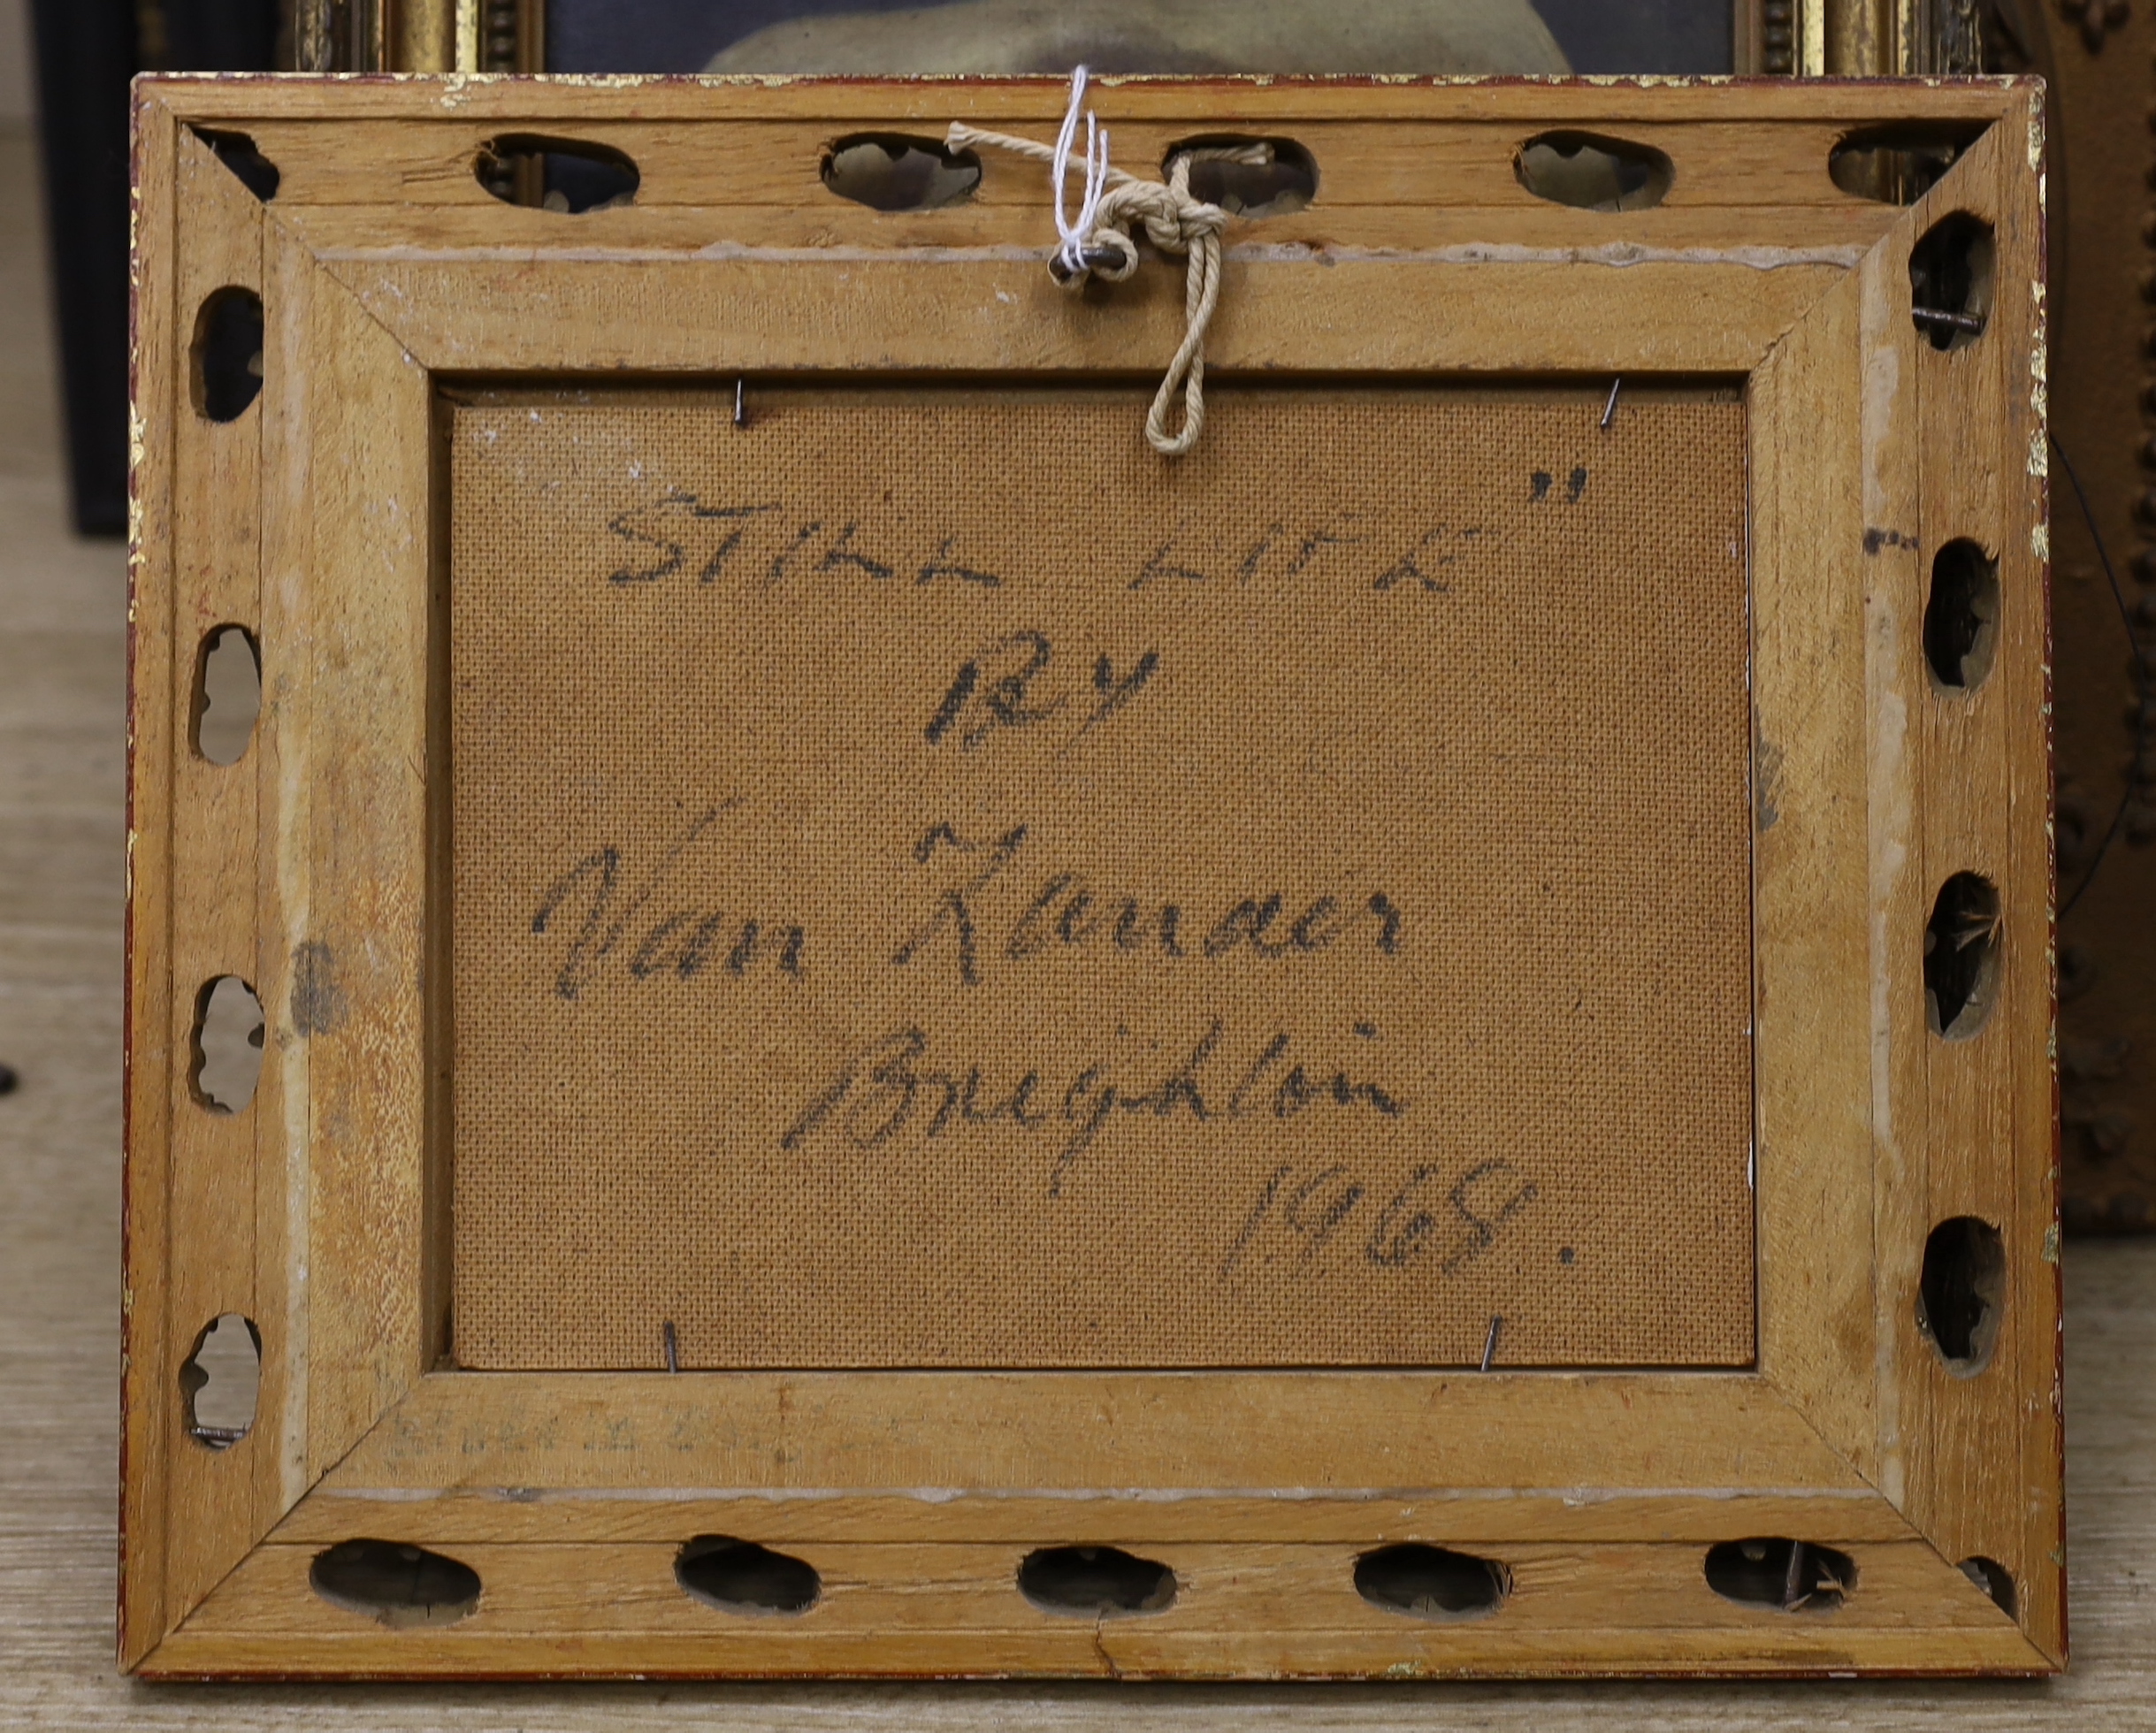 STILL LIFE"
BY
Van Zander
Brighton
1968.